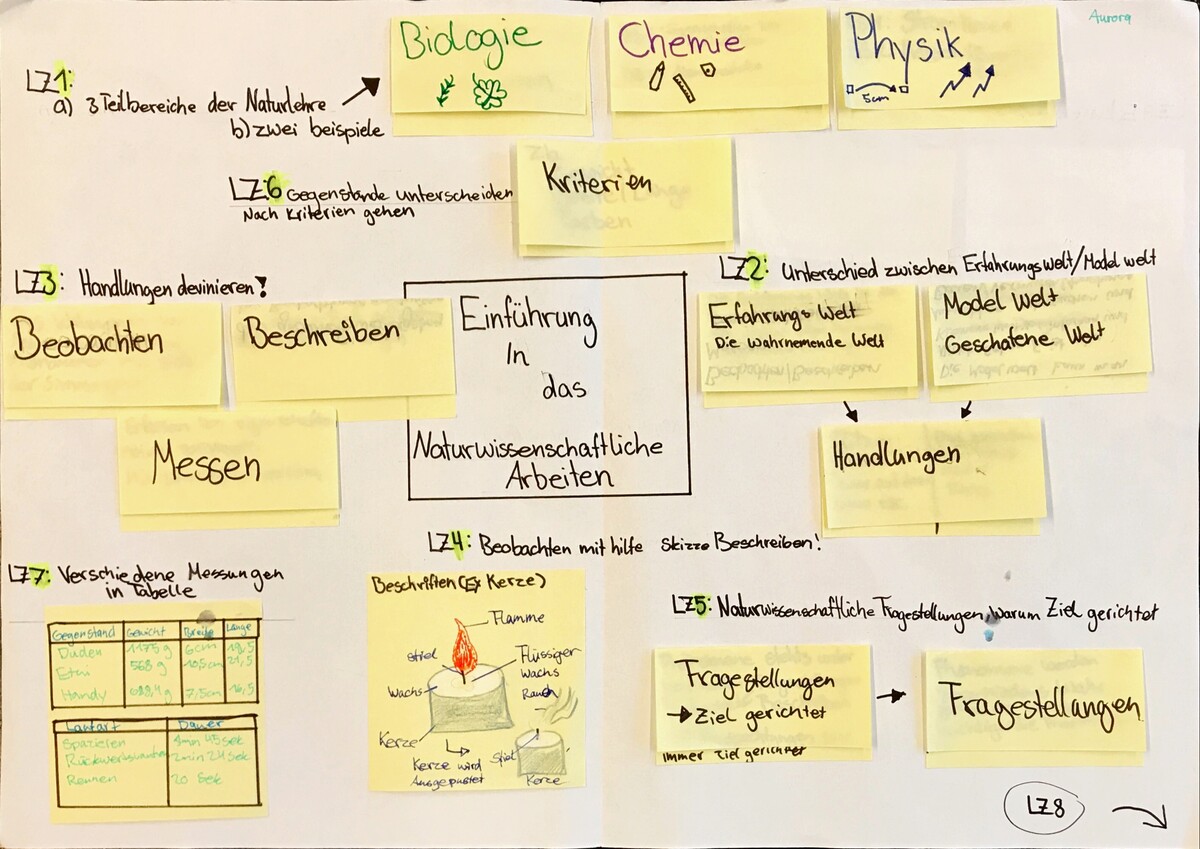 Aurora
Biologie
Chemie
Physik
5cm
LZ1:
a) 3 Teilbereiche der Naturlehre
b) zwei beispiele
LZ6 Gegenstände unterscheiden
Nach Kriterien gehen
Kriterien
LZ3: Handlungen devinieren!
Beobachten
Beschreiben
Messen
Einführung
In
das
Naturwissenschaftliche
Arbeiten
LZ2: Unterschied zwischen Erfahrungswelt/Model welt
Erfahrungs Welt
Die wahrnemende Welt
Beobachten/Beschreiben
Model Welt
Geschafene Welt
Handlungen
LZ7: Verschiedene Messungen
in Tabelle
Gegenstand Gewicht Breite Länge
Duden 1175g 6cm 19,5
Etui 568g 10,5cm 21,5
Handy 7,5cm 16,5
Laufart Dauer
Spazieren 45 sek
2min 24 sek
Rennen 20 sek
LZ4: Beobachten mit hilfe Skizze Beschreiben!
Beschriften (Kerze)
Flamme
stiel
Flüssiger
Wachs
Wachs
Rauch
Kerze
Kerze wird
Ausgepustet
Stiel
Kerze
LZ5: Naturwissenschaftliche Fragestellungen, warum Ziel gerichtet
Fragestellungen
Ziel gerichtet
Immer Ziel gerichtet
Fragestellangen
LZ8